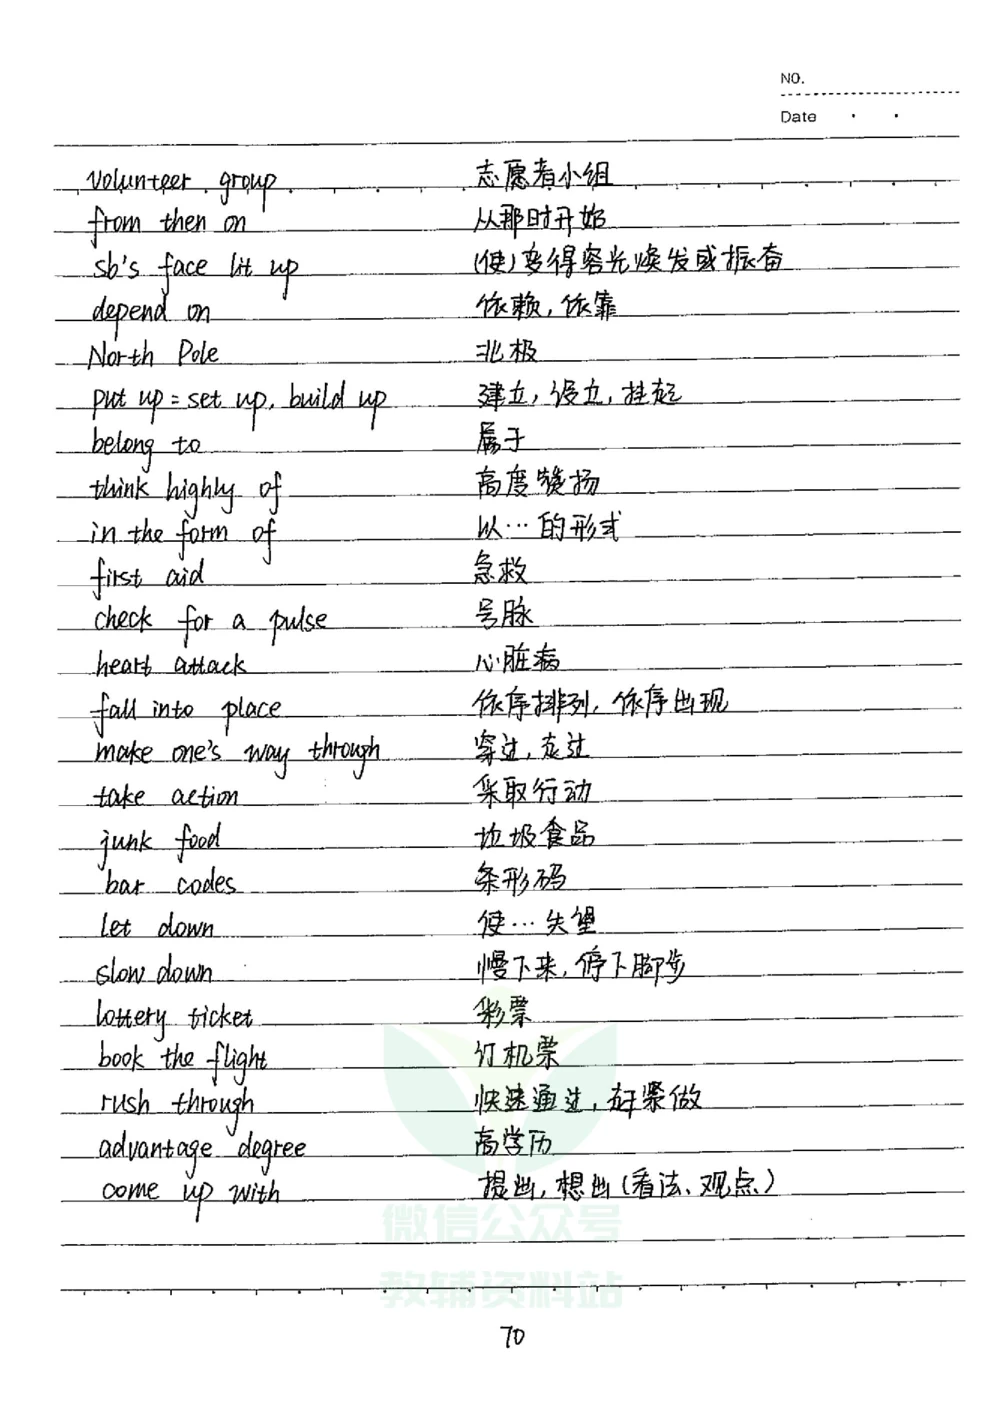 NO.
Date
volunteer group 志愿者小组
from then on 从那时开始
sb's face lit up (使)变得容光焕发或振奋
depend on 依赖,依靠
North Pole 北极
put up = set up, build up 建立,设立,挂起
belong to 属于
think highly of 高度赞扬
in the form of 以…的形式
first aid 急救
check for a pulse 号脉
heart attack 心脏病
fall into place 依序排列,依序出现
make one's way through 穿过,走过
take action 采取行动
junk food 垃圾食品
bar codes 条形码
let down 使…失望
slow down 慢下来,停下脚步
lottery ticket 彩票
book the flight 订机票
rush through 快速通过,赶紧做
advantage degree 高学历
come up with 提出,想出(看法、观点)
微信公众号
教辅资料站
70